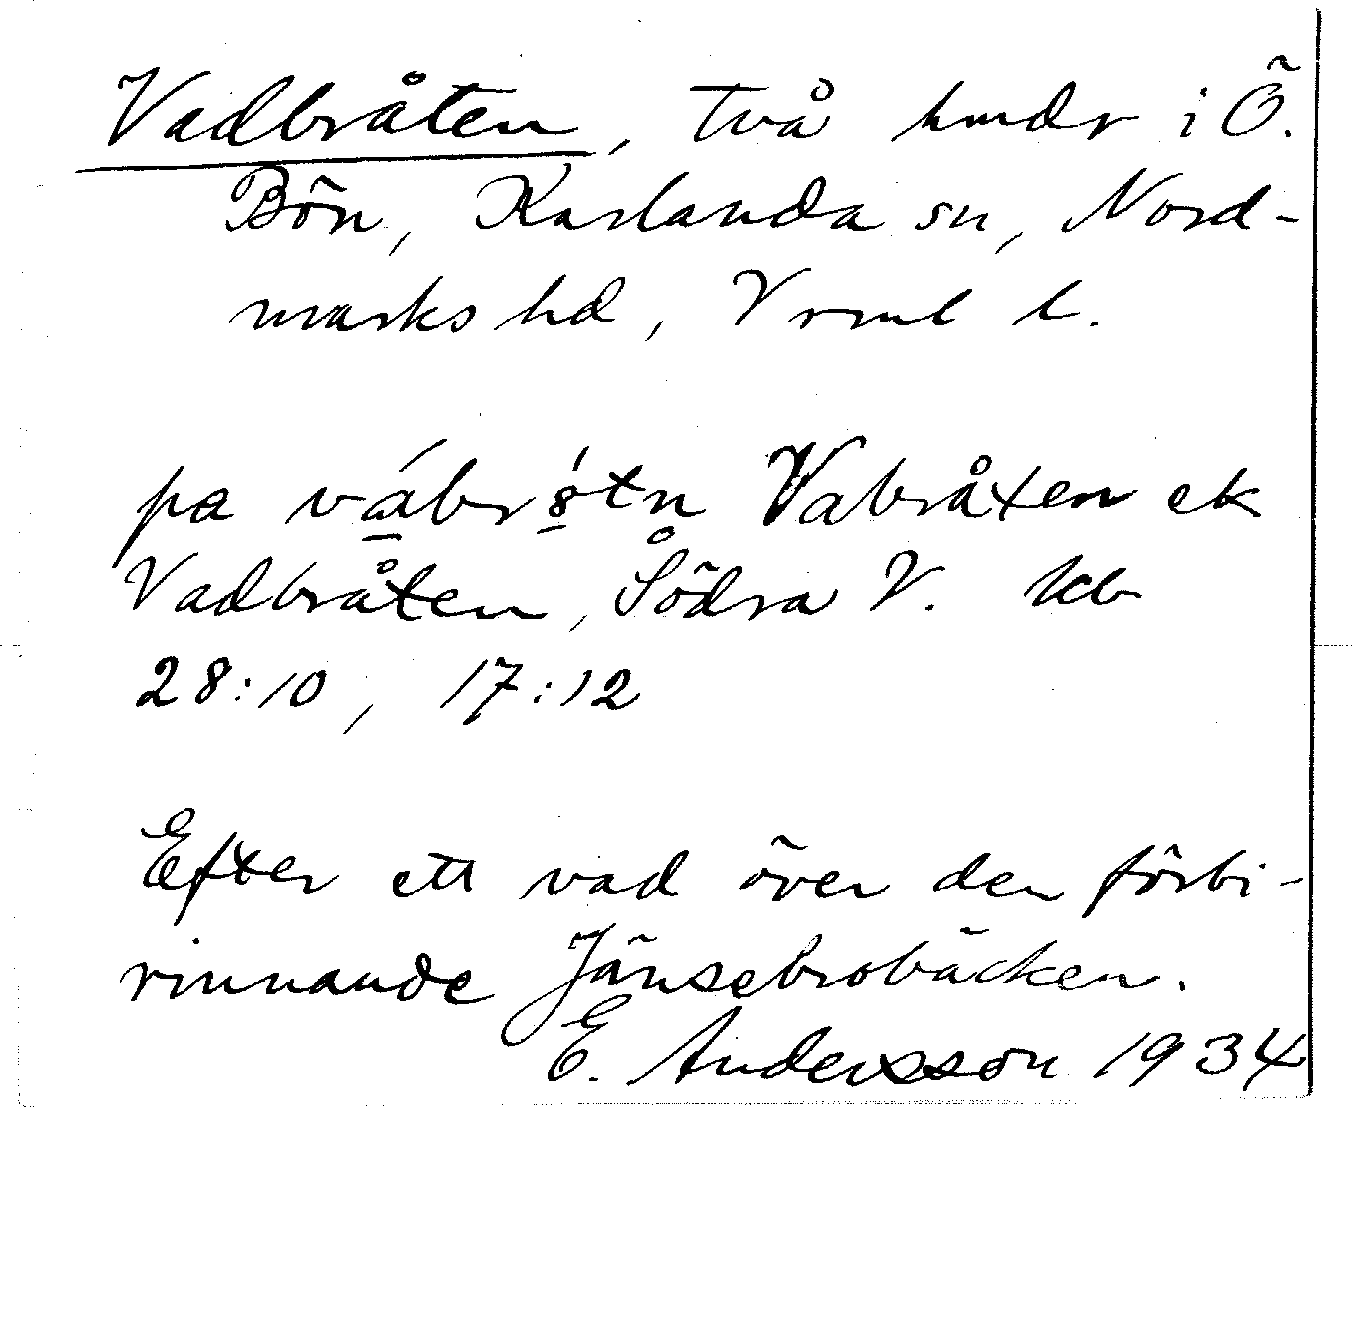 Vadbråten, två hmdr i Ö.
Bön, Karlanda sn, Nord-
marks hd, Vrml l.
pa vábr tn Vabråten ek
Vadbråten, Södra V. kb
28:10, 17:12
Efter ett vad över den förbi-
rinnande Jänsebrobäcken.
E. Andersson 1934